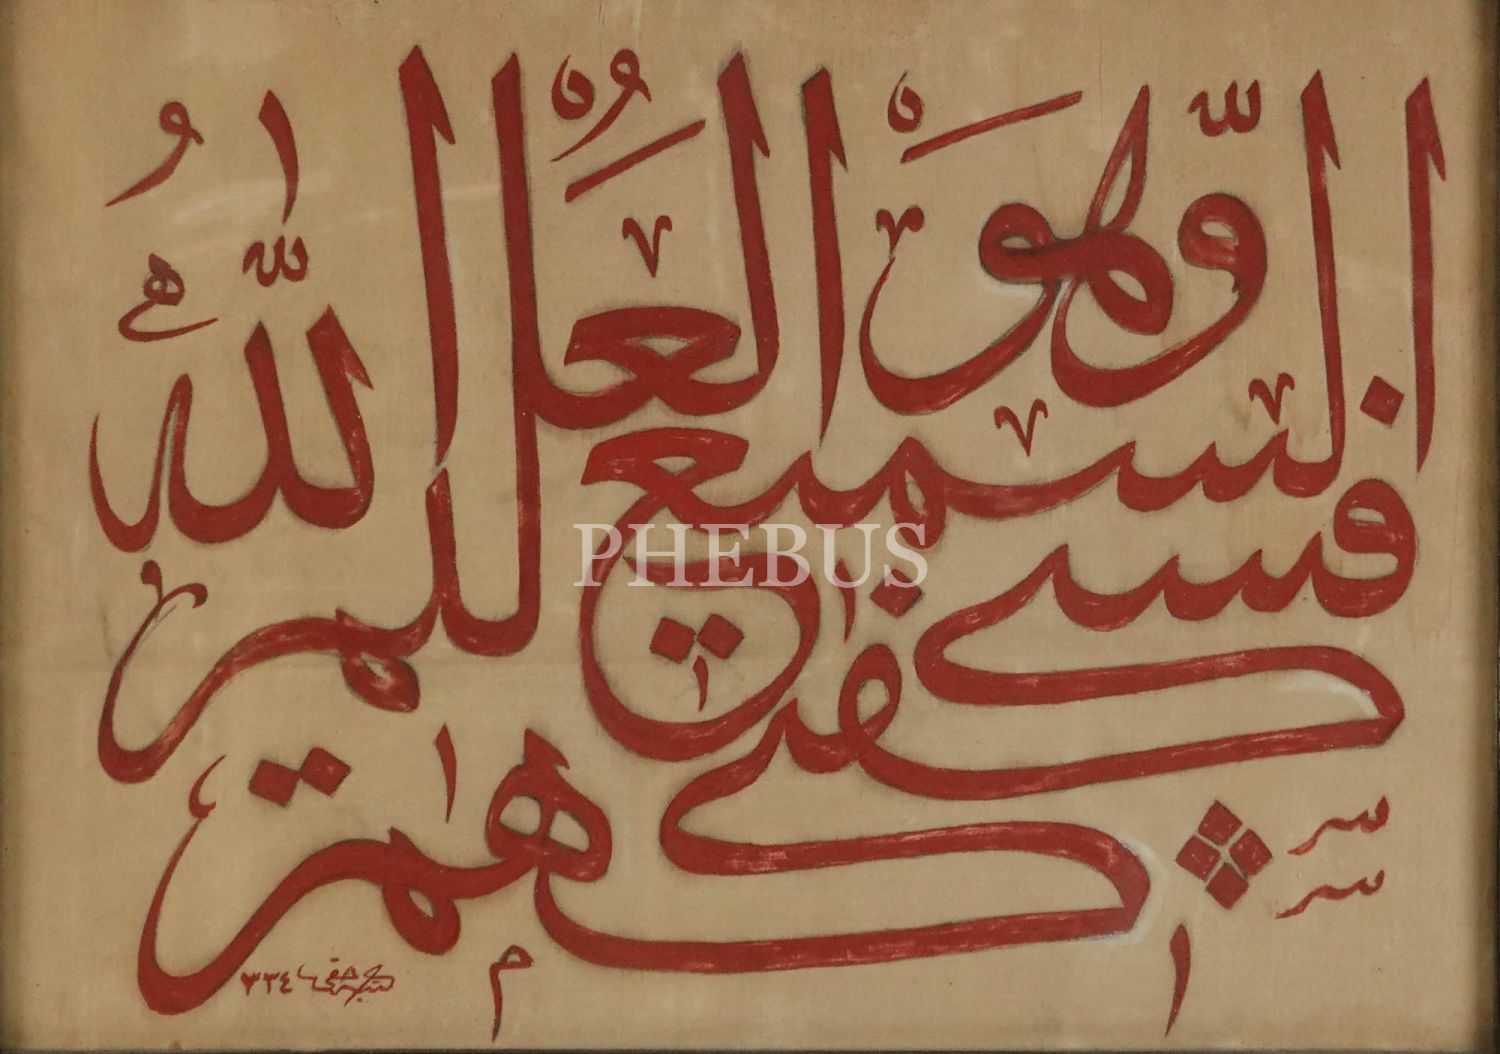 فسيكفيكهم الله
وهو السميع العليم
PHEBUS